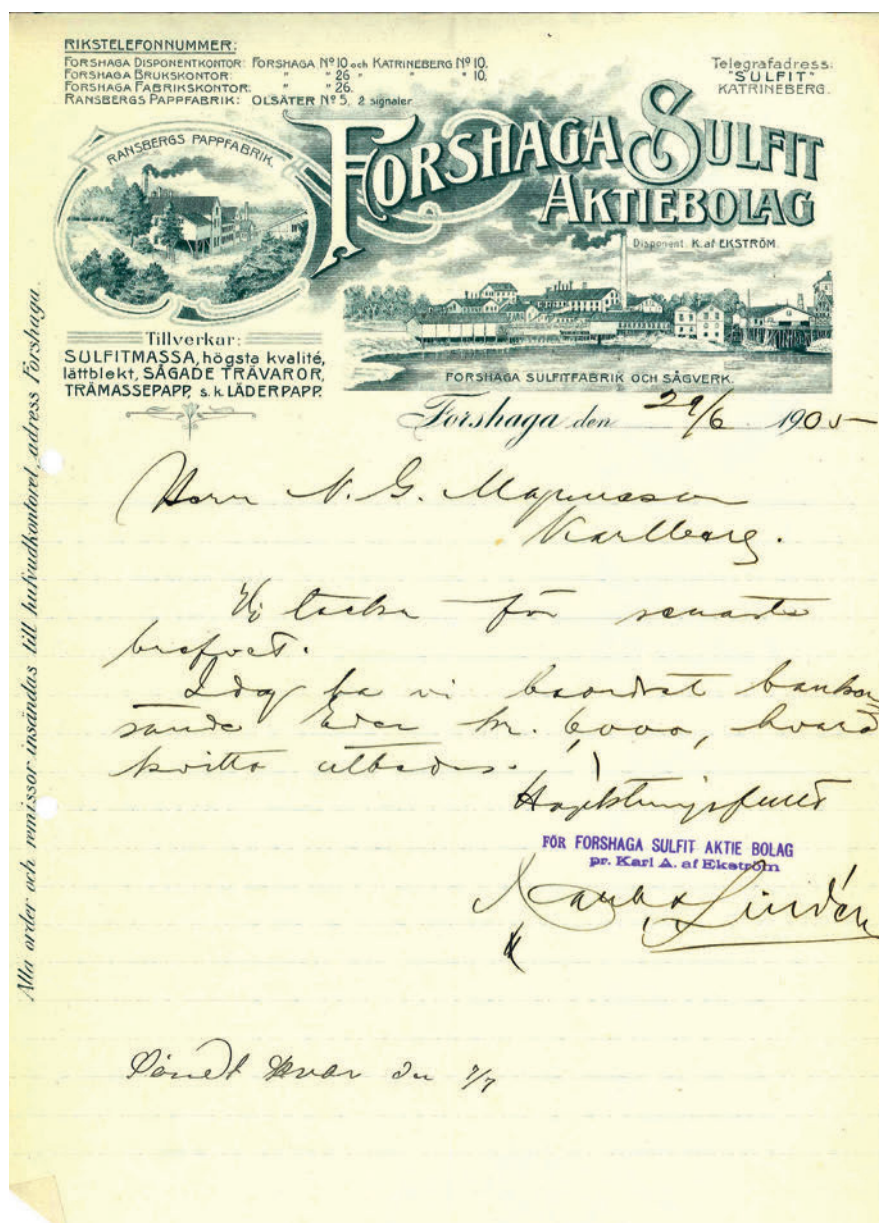 RIKSTELEFONNUMMER:
FORSHAGA DISPONENTKONTOR: FORSHAGA Nº 10 och KATRINEBERG Nº 10.
FORSHAGA BRUKSKONTOR: " " 26 " " " 10.
FORSHAGA FABRIKSKONTOR: " " 26.
RANSBERGS PAPPFABRIK: OLSÄTER Nº 5, 2 signaler
Telegrafadress:
"SULFIT"
KATRINEBERG.
RANSBERGS PAPPFABRIK.
FORSHAGA SULFIT
AKTIEBOLAG
Disponent K. af EKSTRÖM
Tillverkar:
SULFITMASSA, högsta kvalité,
lättblekt, SÅGADE TRÄVAROR,
TRÄMASSEPAPP, s. k. LÄDERPAPP.
FORSHAGA SULFITFABRIK OCH SÅGVERK.
Forshaga den 29/6 1905
Herr N. G. Magnusson
Karlberg.
Vi tacka för senaste
brefvet.
Idag ha vi beordrat banken
sända Eder kr. 6,000, hvard
kvitto utbedes.
Högaktningsfullt
FÖR FORSHAGA SULFIT AKTIE BOLAG
pr. Karl A. af Ekström
Lindén
Sändt kvar den 1/7
Alla order och remissor insändas till hufvudkontoret, adress Forshaga.